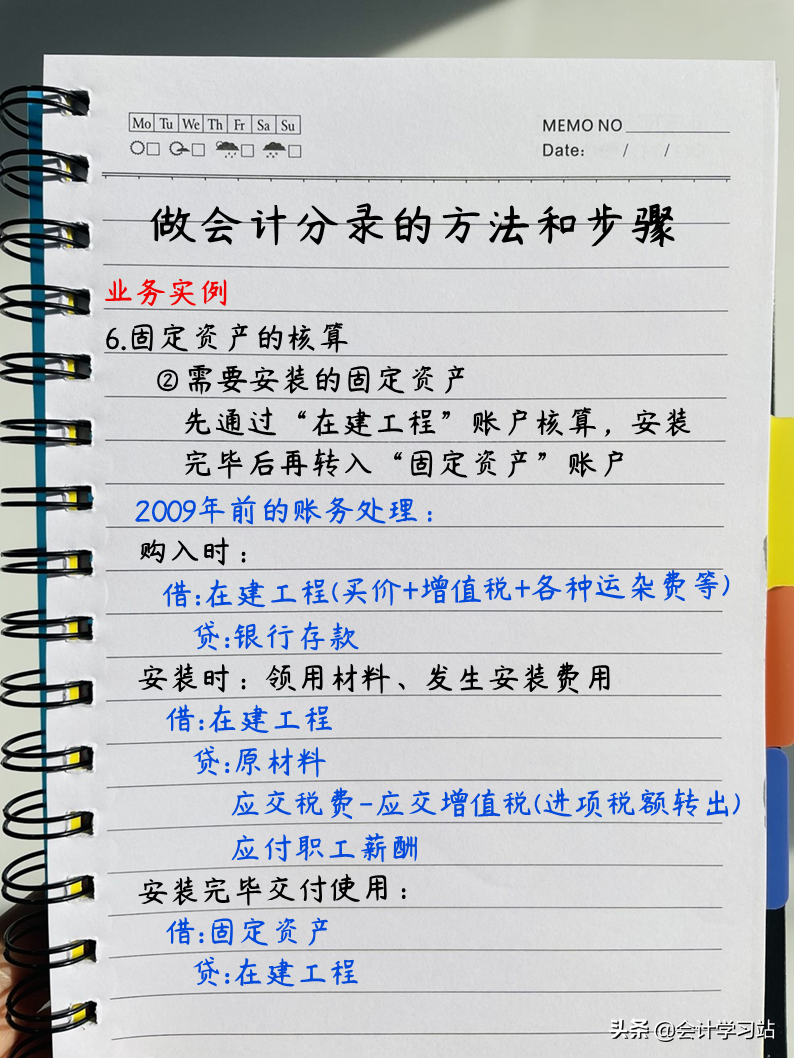 Mo Tu We Th Fr Sa Su
MEMO NO
Date: / /
做会计分录的方法和步骤
业务实例
6.固定资产的核算
②需要安装的固定资产
先通过“在建工程”账户核算，安装
完毕后再转入“固定资产”账户
2009年前的账务处理：
购入时：
借:在建工程(买价+增值税+各种运杂费等)
贷:银行存款
安装时：领用材料、发生安装费用
借:在建工程
贷:原材料
应交税费-应交增值税(进项税额转出)
应付职工薪酬
安装完毕交付使用：
借:固定资产
贷:在建工程
头条 @会计学习站